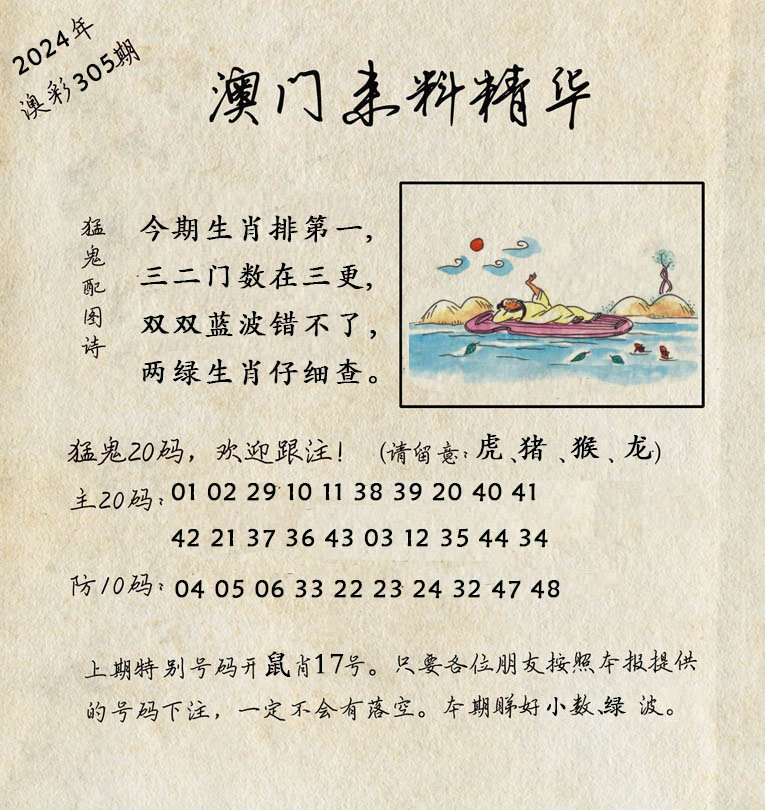 2024年
澳彩305期
澳门来料精华
猛鬼配图诗
今期生肖排第一,
三二门数在三更,
双双蓝波错不了,
两绿生肖仔细查。
猛鬼20码，欢迎跟注！（请留意：虎、猪、猴、龙）
主20码：01 02 29 10 11 38 39 20 40 41
42 21 37 36 43 03 12 35 44 34
防10码：04 05 06 33 22 23 24 32 47 48
上期特别号码开鼠肖17号。只要各位朋友按照本报提供
的号码下注，一定不会有落空。本期睇好小数、绿 波。